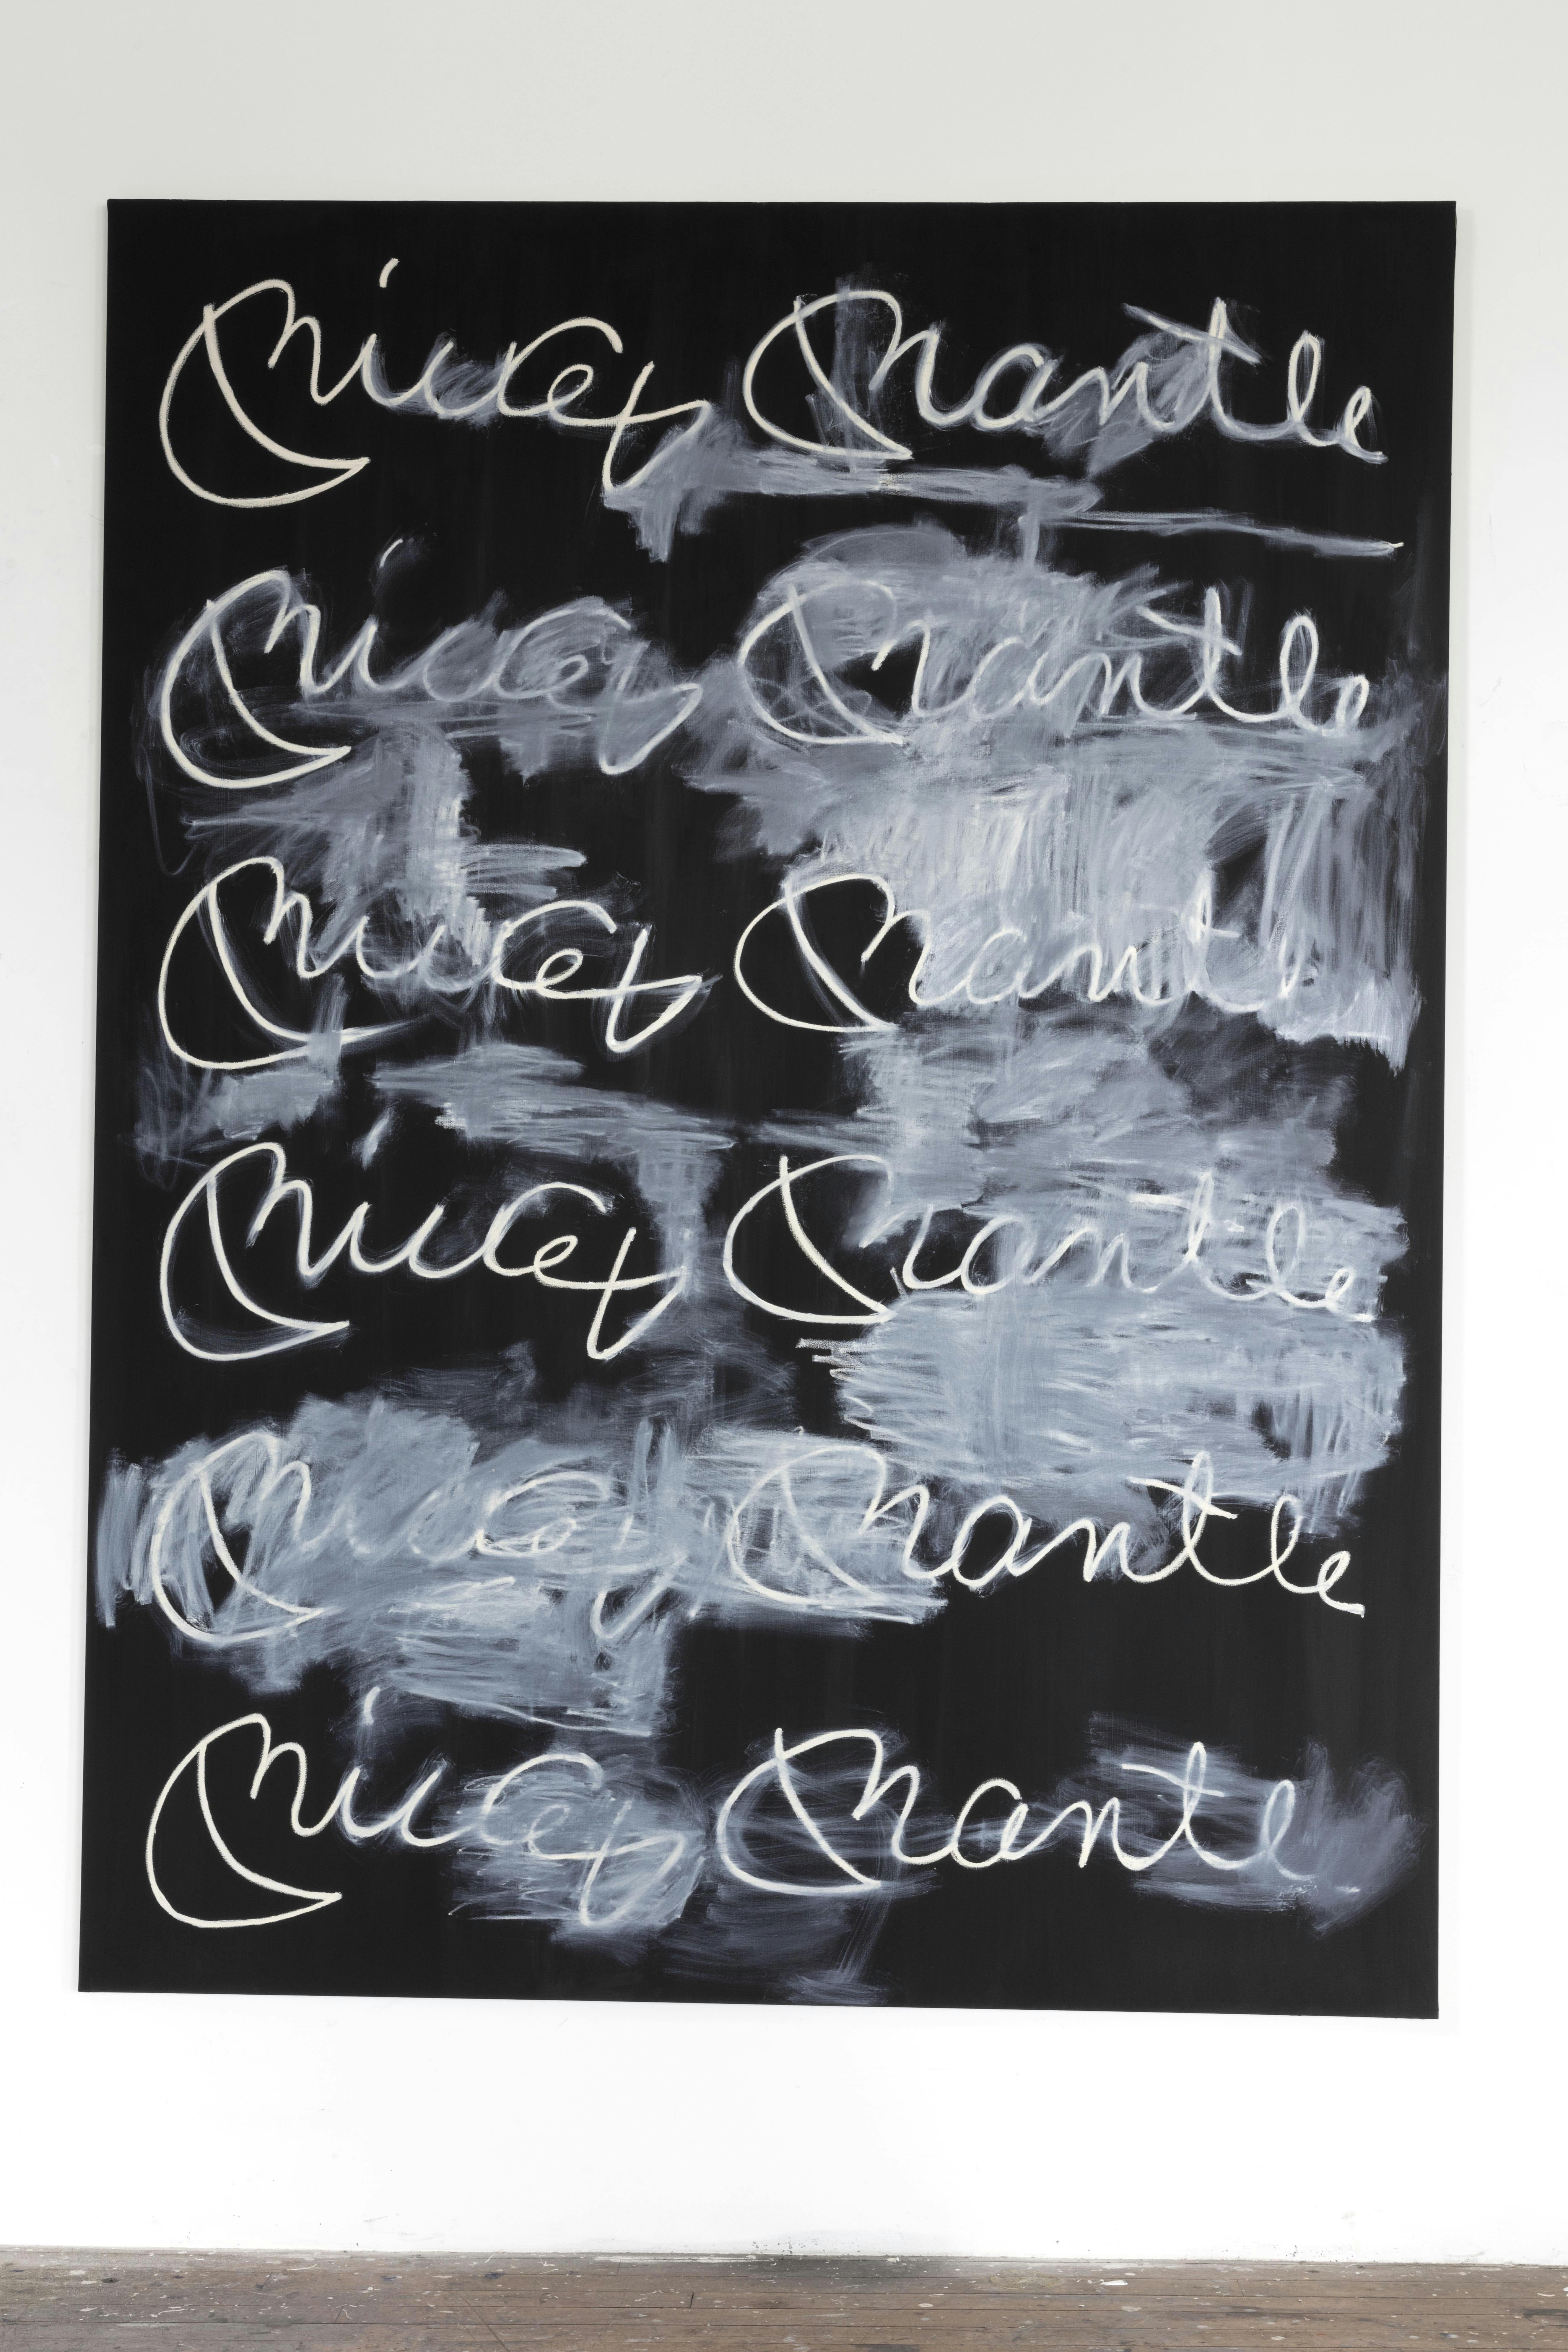 Mickey Mantle
Mickey Mantle
Mickey Mantle
Mickey Mantle
Mickey Mantle
Mickey Mantle